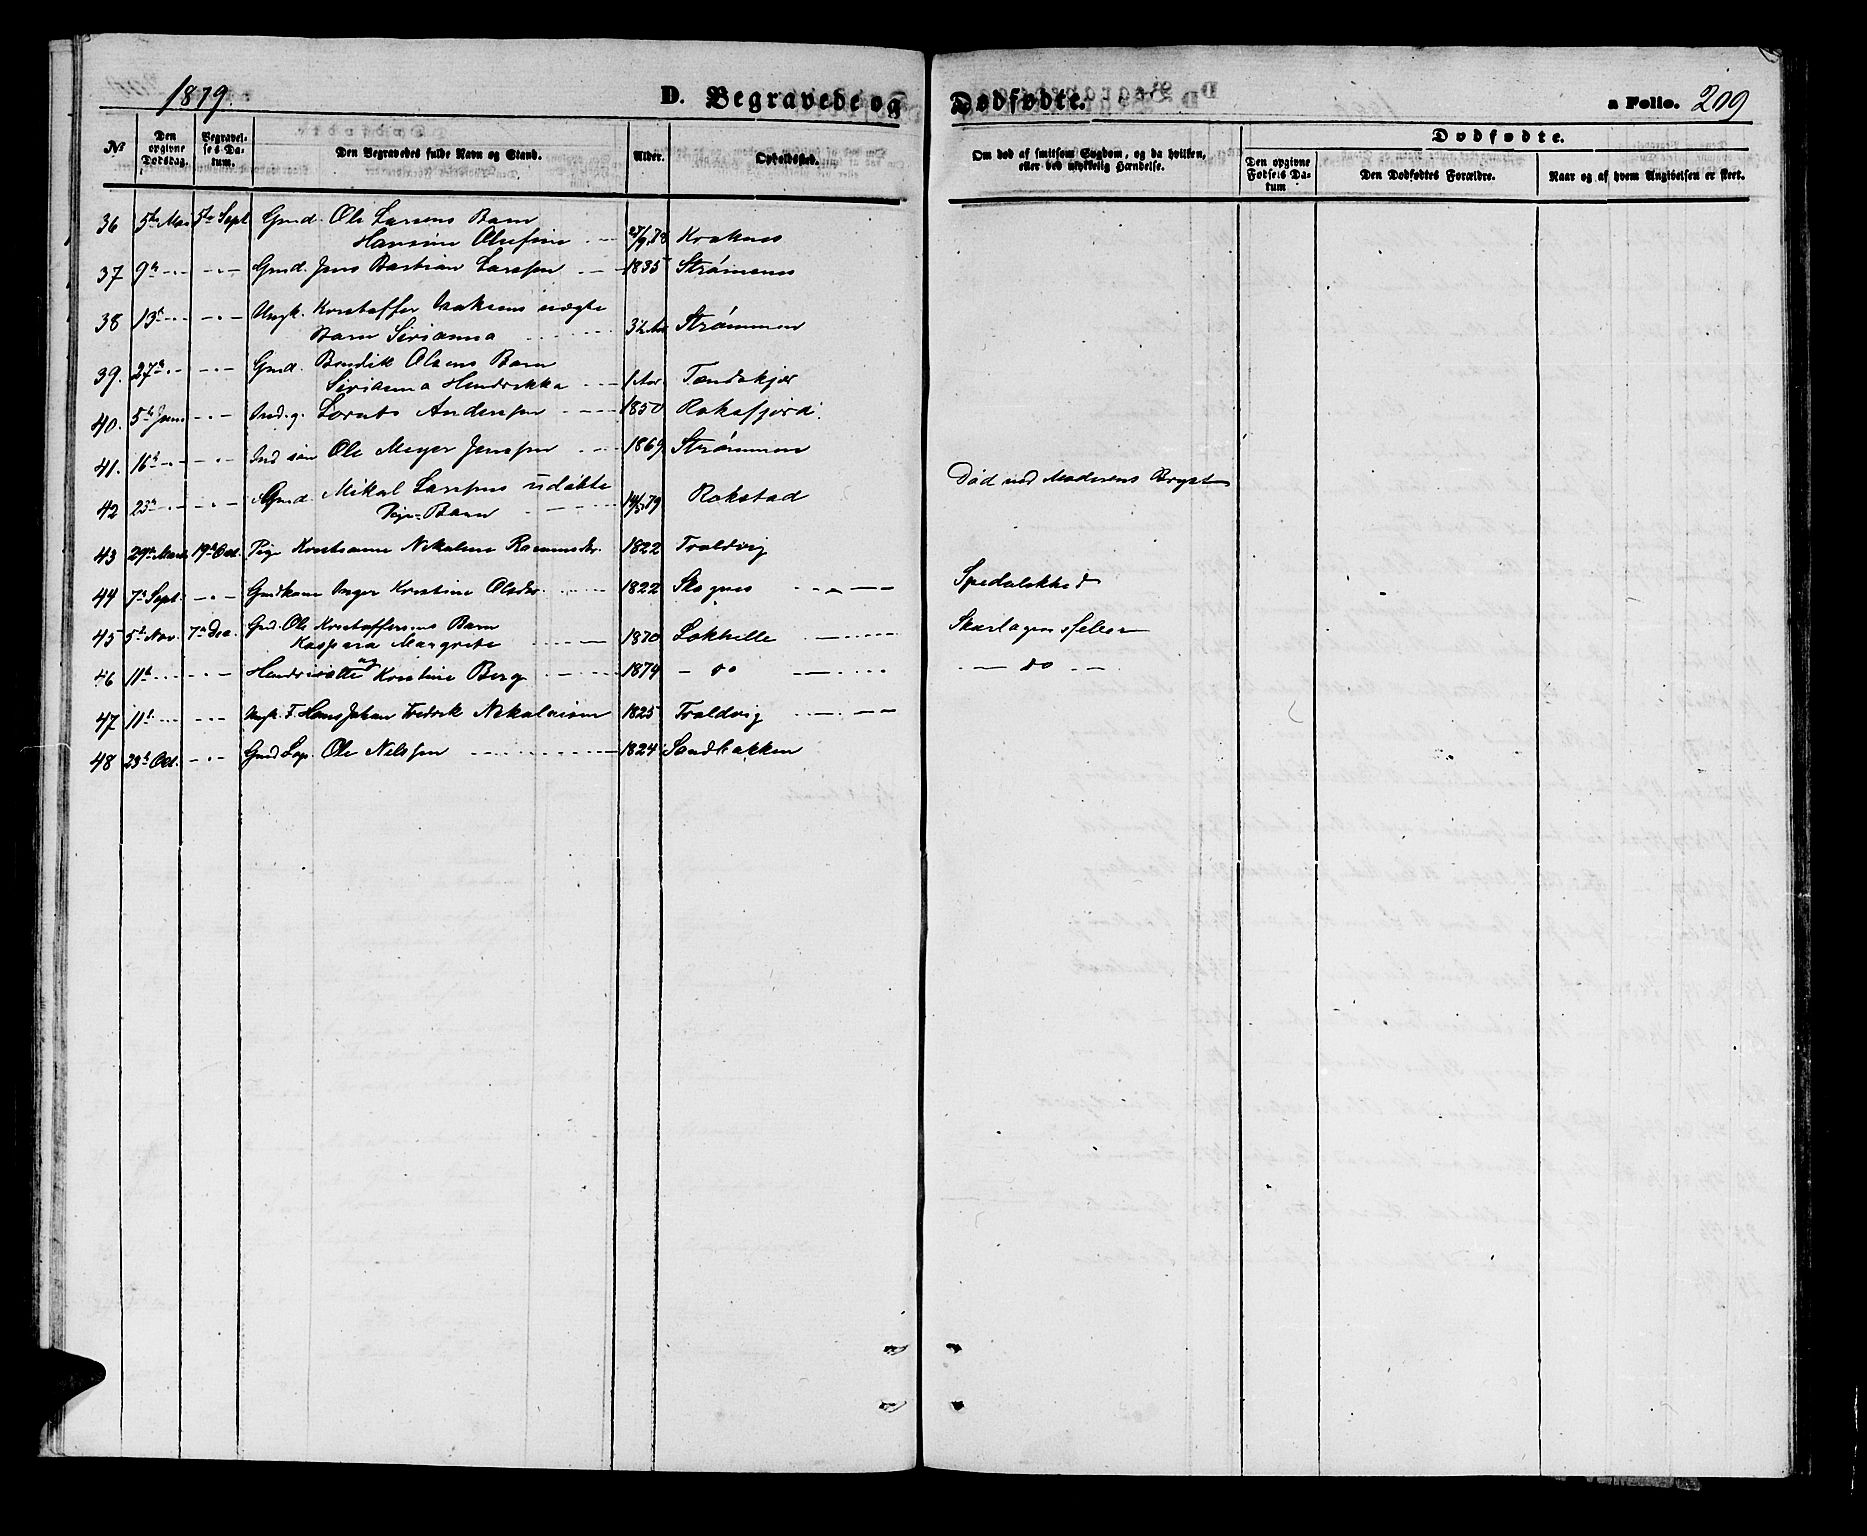 1879.
D. Begravede og Dødfødte.
a Folio. 209
Dødfødte.
No
Den opgivne Dødsdag.
Begravelses Datum.
Den Begravedes fulde Navn og Stand.
Alder.
Opholdssted.
Om død af smitsom Sygdom, og da hvilken, eller ved ulykkelig Hændelse.
Den opgivne Fødsels Datum
Den Dødfødtes Forældre.
Naar og af hvem Angivelsen er skeet.
36 5te Mai 5te Sept Gmd. Ole Larsens Barn
Hansine Olufine 27/9.78 Kraknes
37 9de - - Gmd. Jens Bastian Larssen 1835 Strømmen
38 13d - - Ungk. Kristoffer Isaksens uægte
Barn Sirianna Strømmen
39. 27de - - Gmd. Bendik Olsens Barn
Sirianna Hendrikka 1 Aar Tændskjær
40. 5te Juni - - Ind. g. Lorents Andersen 1850 Roksfjord.
41. 16de - - Ind søn Ole Meyer Jenssen 1869 Strømmen
42 23de - - Gmd. Mikal Larssens udøbte
Pige-Barn 14/5.79 Rokstad Død ved Moderens Bryst
43 29de Marts 19de Oct. Pige Kristianne Nikoline Rasmusdr. 1822 Troldvig
44 7de Sept. - - Gmdkone Inger Kristine Olsdr. 1822 Skognes Spedalskhed
45 5te Nov. 7de Dec. Gmd. Ole Kristoffersens Barn
Kaspara Margrete 1870 Løkhelle Skarlagensfeber
46 11te - - Hendriette Kristine Berg 1874 - do - do -
47 11te - - Ungk. F. Hans Johan Fredrik Nikolaisen 1825 Troldvig
48 23de Oct. - - Gmd Lap. Ole Nilssen 1824 Sandbakken